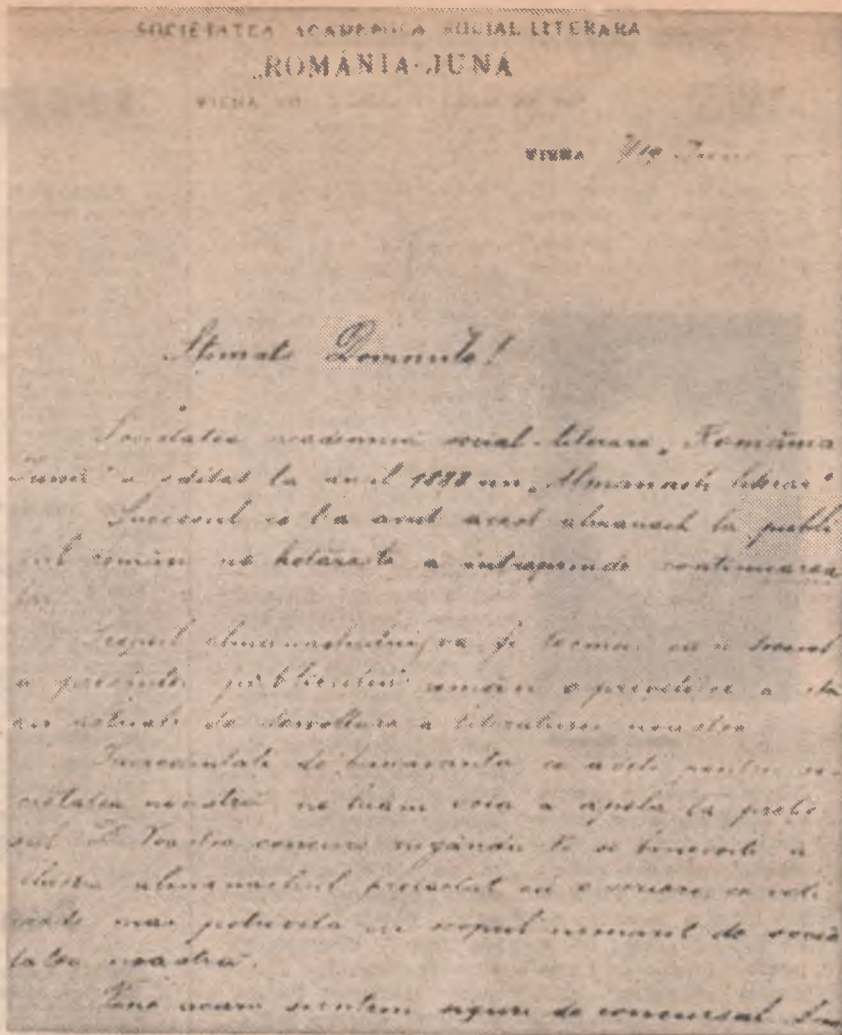 SOCIETATEA ACADEMICA SOCIAL LITERARA
„ROMÂNIA-JUNĂ
VIENA
VIENA 7/19
Stimate Domnule!
Societatea academică social-literara „România
Jună" a editat la anul 1888 un „Almanach literar"
Succesul ce l-a avut acest almanach la publi
cul român ne hotărește a intreprinde continuarea
lui.
Scopul almanachului va fi
a presinta publicului român o privelisce a stă
rei actuale de desvoltare a literaturei noastre
Increዲntati de bunăvointa ce aveti pentru so
cietatea noastră ne luăm voia a apela la pretio
sul D Voastre concurs rugându Ve se binevoiti a
almanachul proiectat cu o scriere, ce veti
mai potrivita cu scopul urmarit de socie
tatea noastră.
suntem siguri de concursul